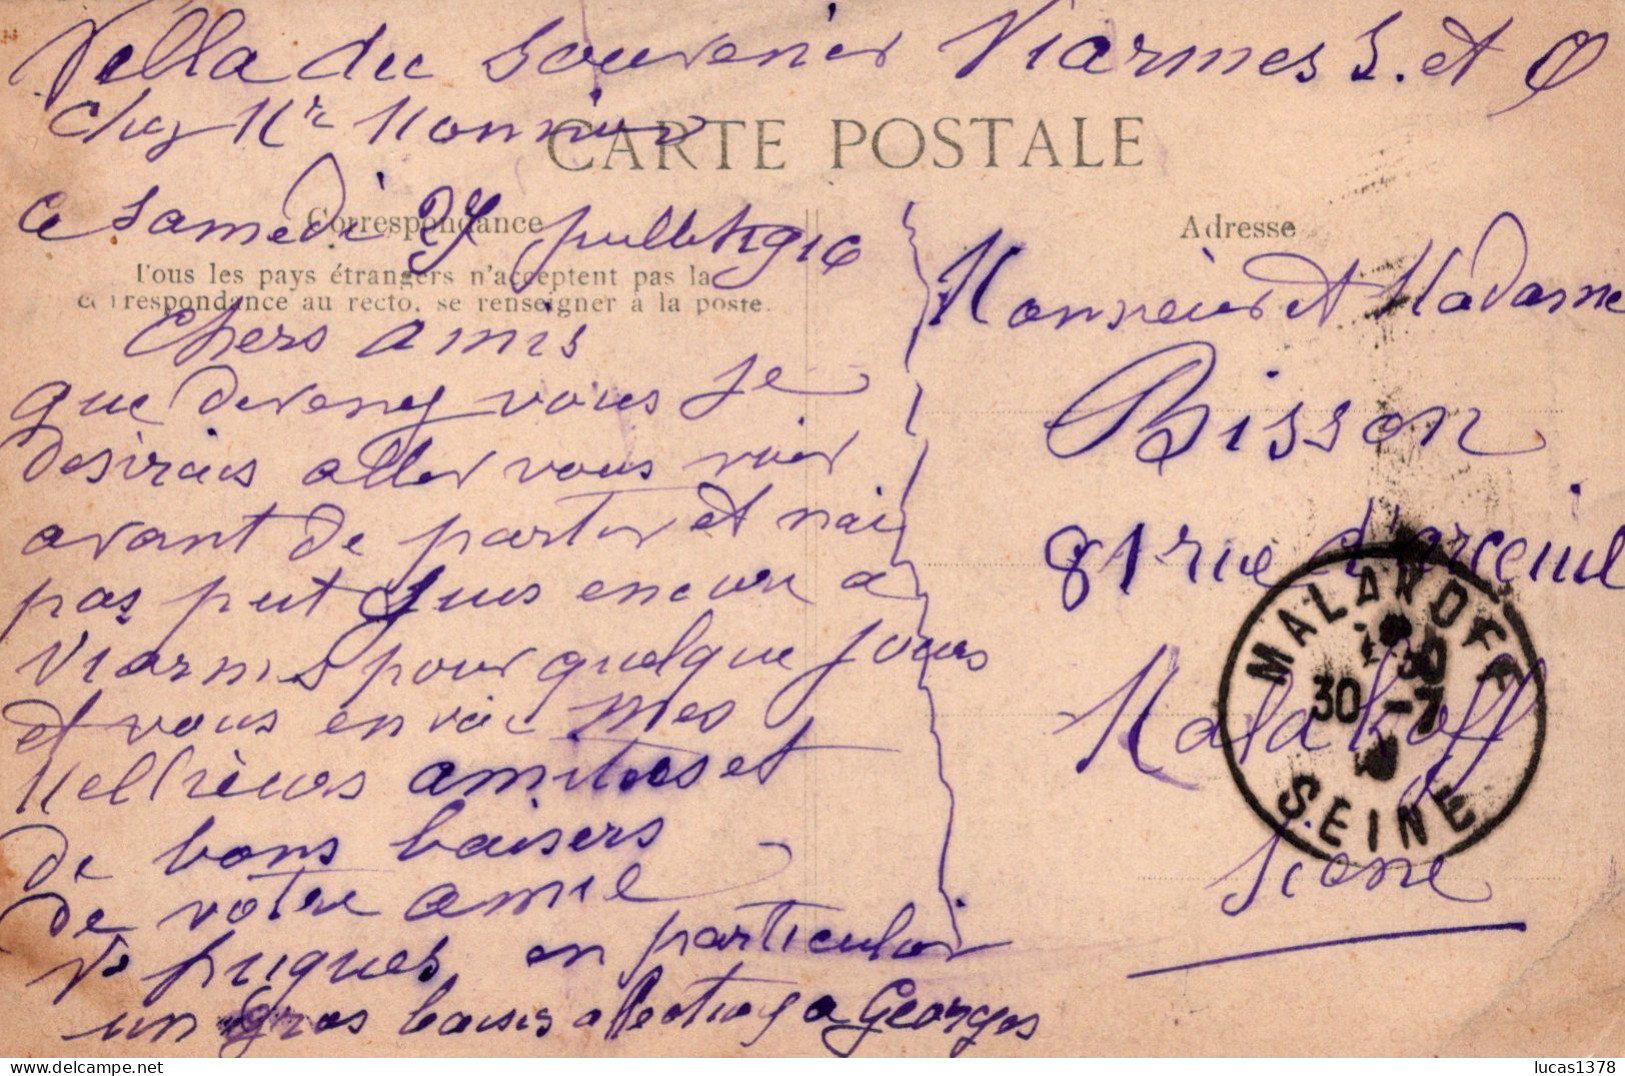 Vella du Souvenir Viarmes S. et O
Chez Mr Monnier
CARTE POSTALE
Ce Samedi juillet 1910
Correspondance
Tous les pays étrangers n'acceptent pas la
correspondance au recto, se renseigner à la poste.
Chers amis
que devenez vous Je
desirais aller vous voir
avant de partir et nai
pas put suis encore a
Viarmes pour quelque jours
et vous envoie mes
Meilleures amities et
de bons baisers
de votre amie
Ve en particulier
un gros baisers a Georges
Adresse
Monsieur et Madame
Bisson
81 rue d'arceuil
Malakoff
Seine
MALAKOFF
30 -7
SEINE
lucas1378